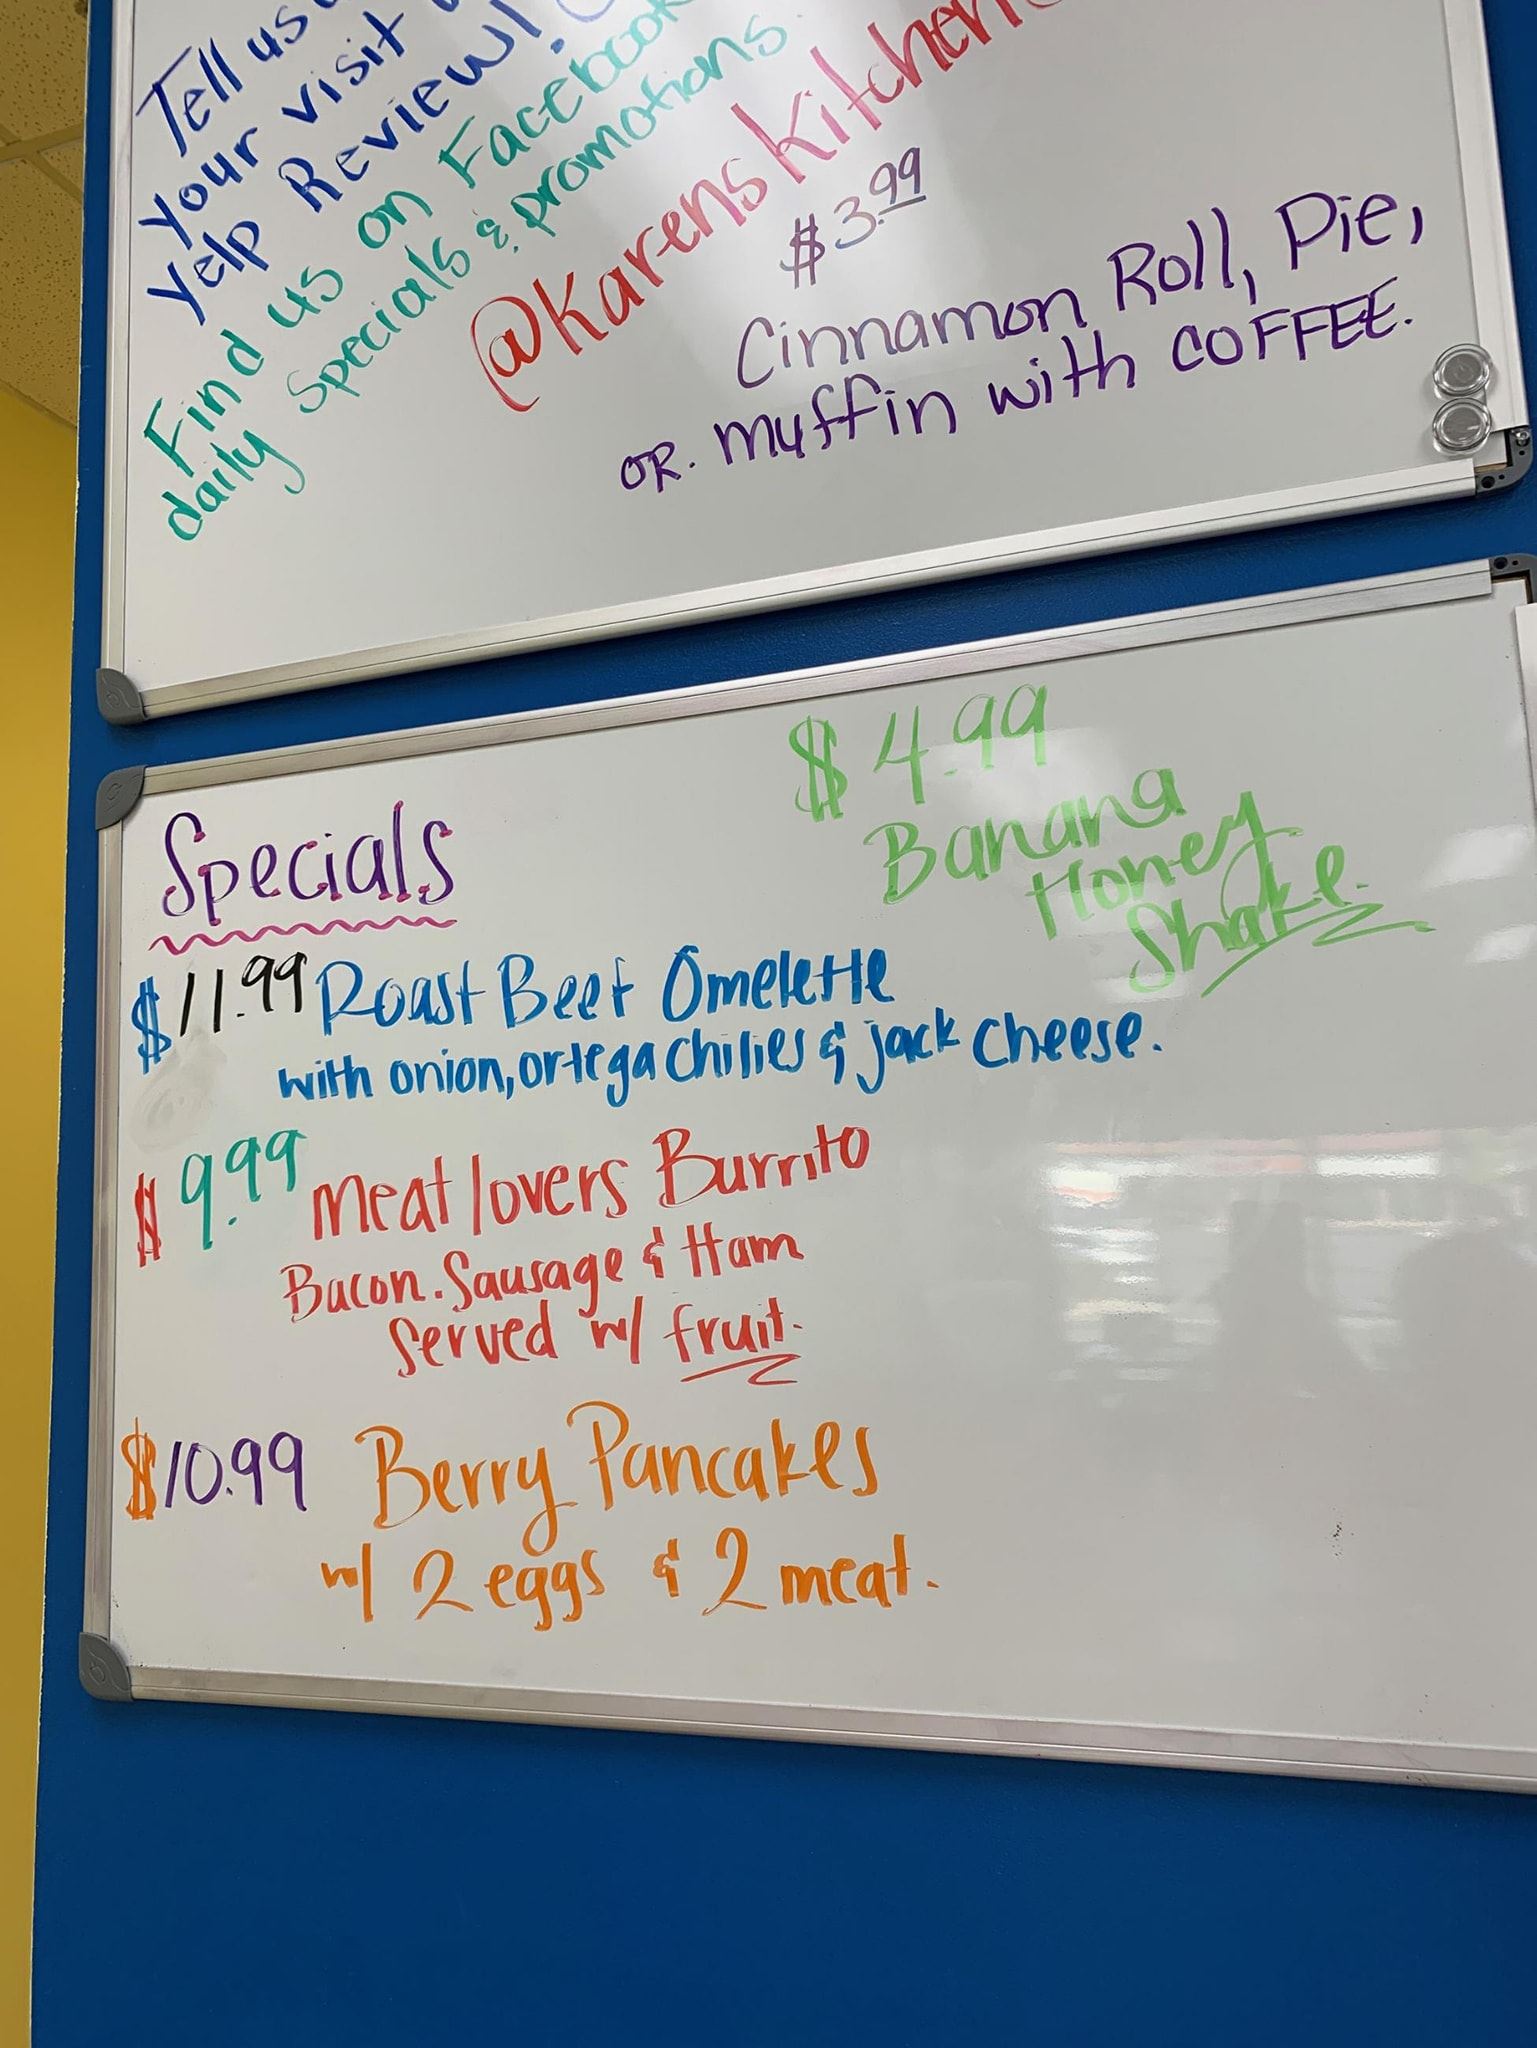 Tell us
your visit
Yelp Review!
Find us on Facebook
daily specials & promotions.
@Karenskitchen
$3.99
Cinnamon Roll, Pie,
OR. muffin with COFFEE.
$4.99
Banana
Honey
Shake.
Specials
$11.99 Roast Beef Omelette
with onion, ortega chilies & jack cheese.
$9.99 Meat lovers Burrito
Bacon. Sausage & Ham
Served w/ fruit.
$10.99 Berry Pancakes
w/ 2 eggs & 2 meat.